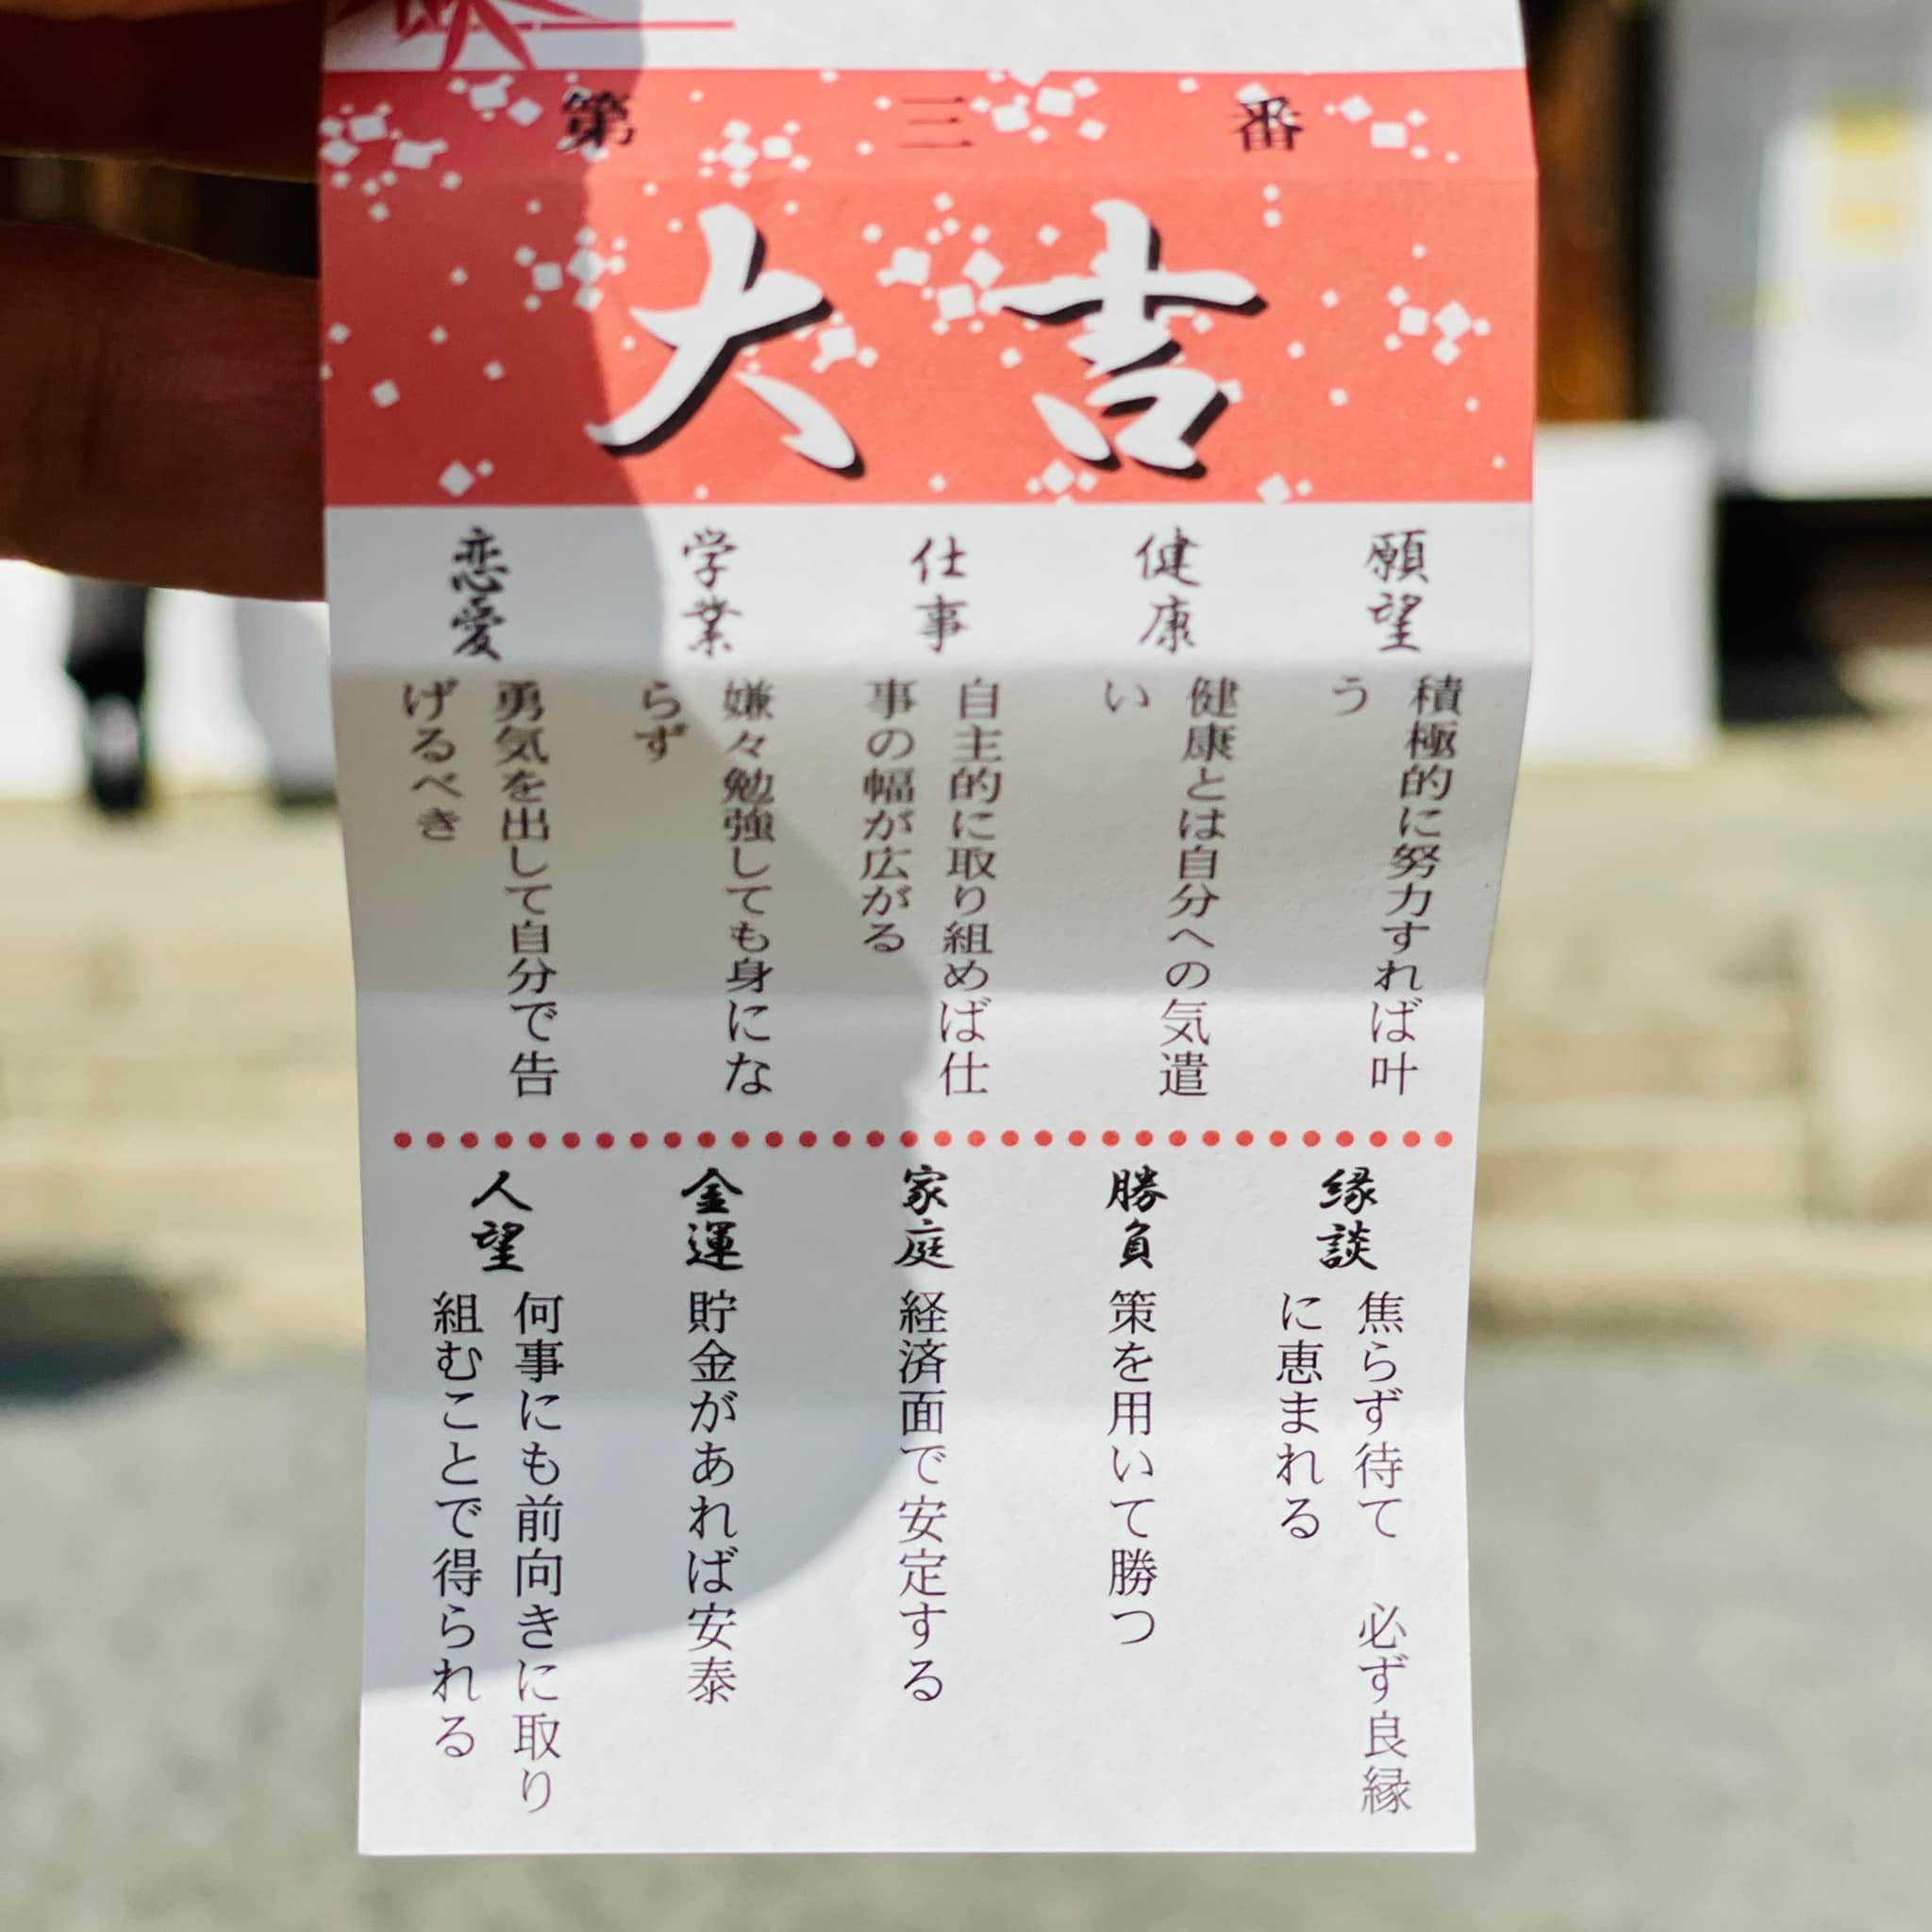 第三番
大吉
願望
積極的に努力すれば叶
う
健康
健康とは自分への気遣
い
仕事
自主的に取り組めば仕
事の幅が広がる
学業
嫌々勉強しても身にな
らず
恋愛
勇気を出して自分で告
げるべき
縁談
焦らず待て　必ず良縁
に恵まれる
勝負
策を用いて勝つ
家庭
経済面で安定する
金運
貯金があれば安泰
人望
何事にも前向きに取り
組むことで得られる